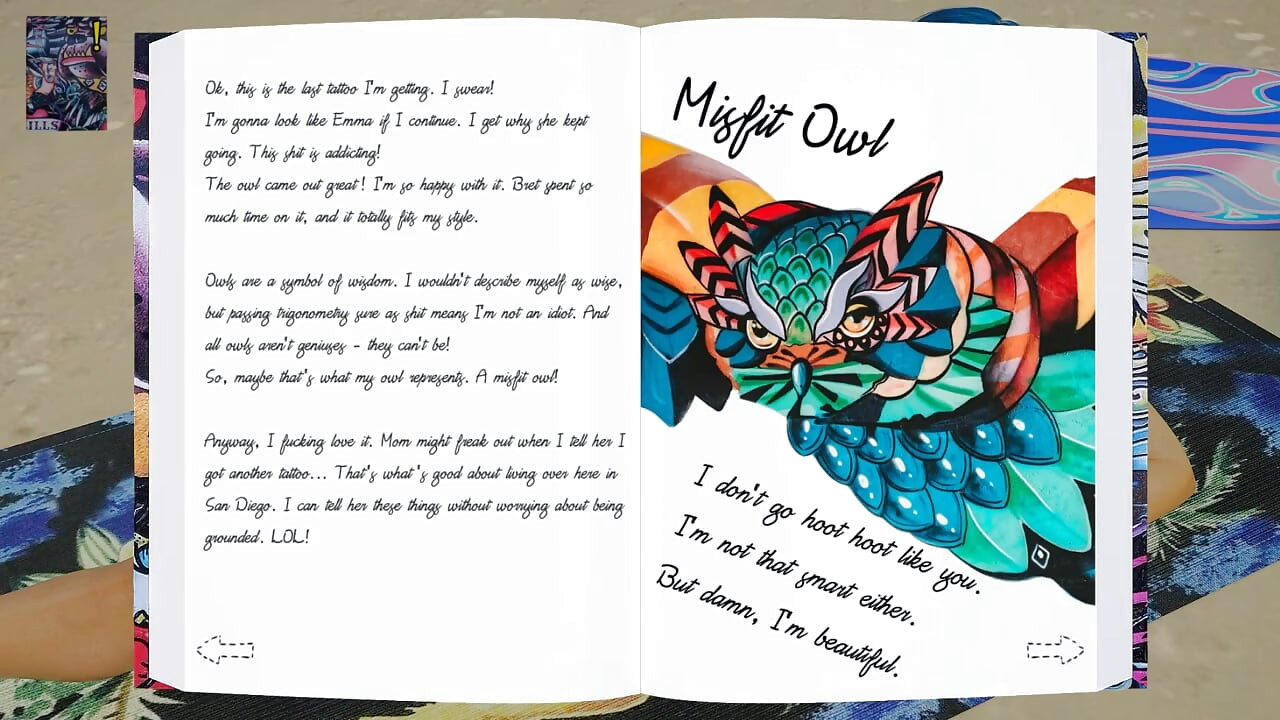 Ok, this is the last tattoo I'm getting. I swear!
I'm gonna look like Emma if I continue. I get why she kept
going. This shit is addicting!
The owl came out great! I'm so happy with it. Bret spent so
much time on it, and it totally fits my style.
Owls are a symbol of wisdom. I wouldn't describe myself as wise,
but passing trigonometry sure as shit means I'm not an idiot. And
all owls aren't geniuses - they can't be!
So, maybe that's what my owl represents. A misfit owl!
Anyway, I fucking love it. Mom might freak out when I tell her I
got another tattoo... That's what's good about living over here in
San Diego. I can tell her these things without worrying about being
grounded. LOL!
Misfit Owl
I don't go hoot hoot like you.
I'm not that smart either.
But damn, I'm beautiful.
!
ILLS